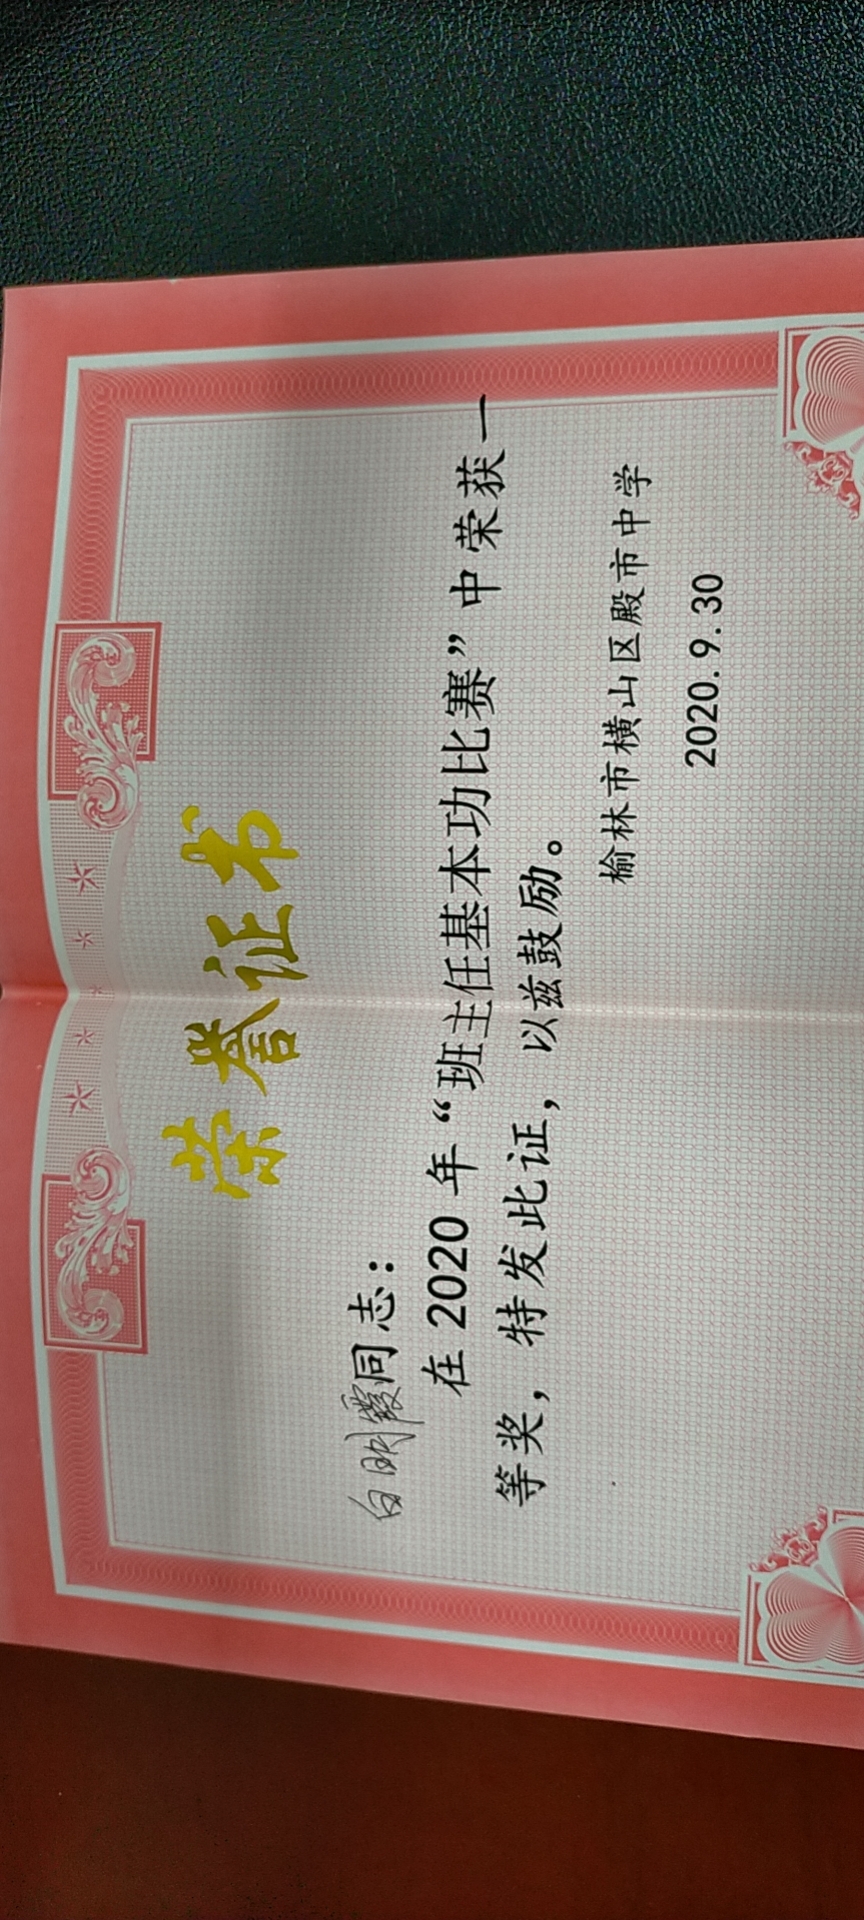 荣誉证书
白明霞同志：
在 2020 年“班主任基本功比赛”中荣获一
等奖，特发此证，以兹鼓励。
榆林市横山区殿市中学
2020.9.30